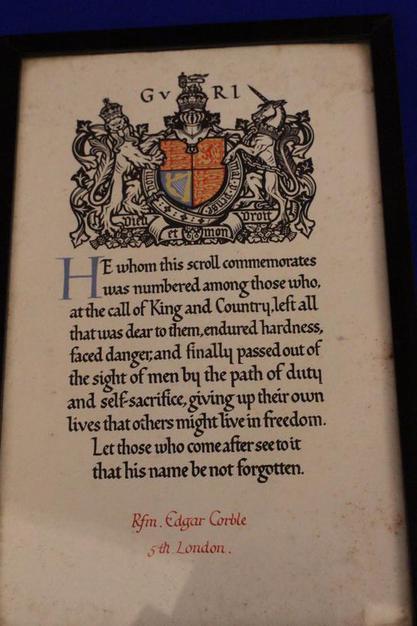 GVRI
Dieu et mon Droit
HE whom this scroll commemorates
was numbered among those who,
at the call of King and Country, left all
that was dear to them, endured hardness,
faced danger, and finally passed out of
the sight of men by the path of duty
and self-sacrifice, giving up their own
lives that others might live in freedom.
Let those who come after see to it
that his name be not forgotten.
Rfm. Edgar Corble
5th London.